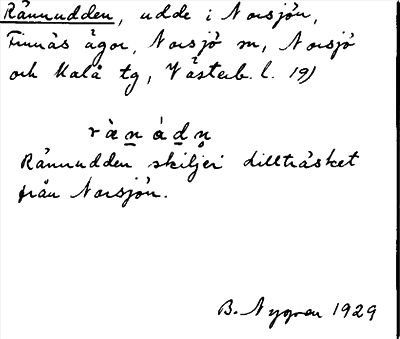 Rånnudden, udde i Norsjön,
Finnäs ägor, Norsjö sn, Norsjö
och Malå tg, Västerb. l. 19)
rå̀nádn̥
Rånnudden skiljer dillträsket
från Norsjön.
B. Nygren 1929